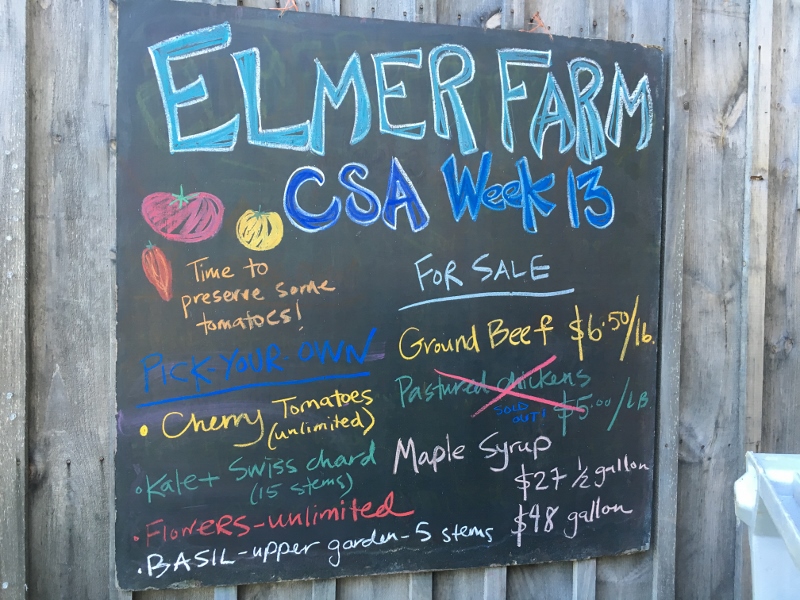 ELMER FARM
CSA Week 13
Time to
preserve some
tomatoes!
PICK-YOUR-OWN
• Cherry Tomatoes
(unlimited)
• Kale + Swiss chard
(15 stems)
• Flowers - unlimited
• BASIL - upper garden - 5 stems
FOR SALE
Ground Beef $6.50/lb.
Pastured chickens
SOLD OUT! $5.00/LB
Maple Syrup
$27 1/2 gallon
$48 gallon